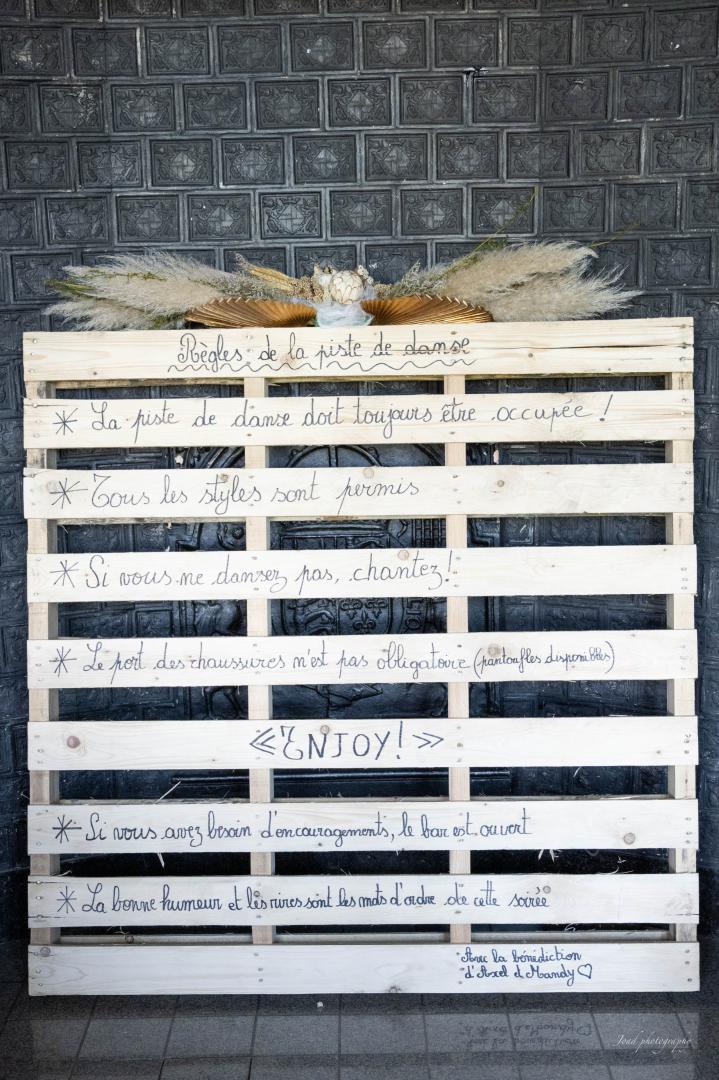 Règles de la piste de danse
* La piste de danse doit toujours être occupée !
* Tous les styles sont permis
* Si vous ne dansez pas, chantez !
* Le port des chaussures n'est pas obligatoire (pantoufles disponibles)
« ENJOY! »
* Si vous avez besoin d'encouragements, le bar est ouvert
* La bonne humeur et les rires sont les mots d'ordre de cette soirée
Avec la bénédiction
d'Axel et Mandy ♡
Joad photographe